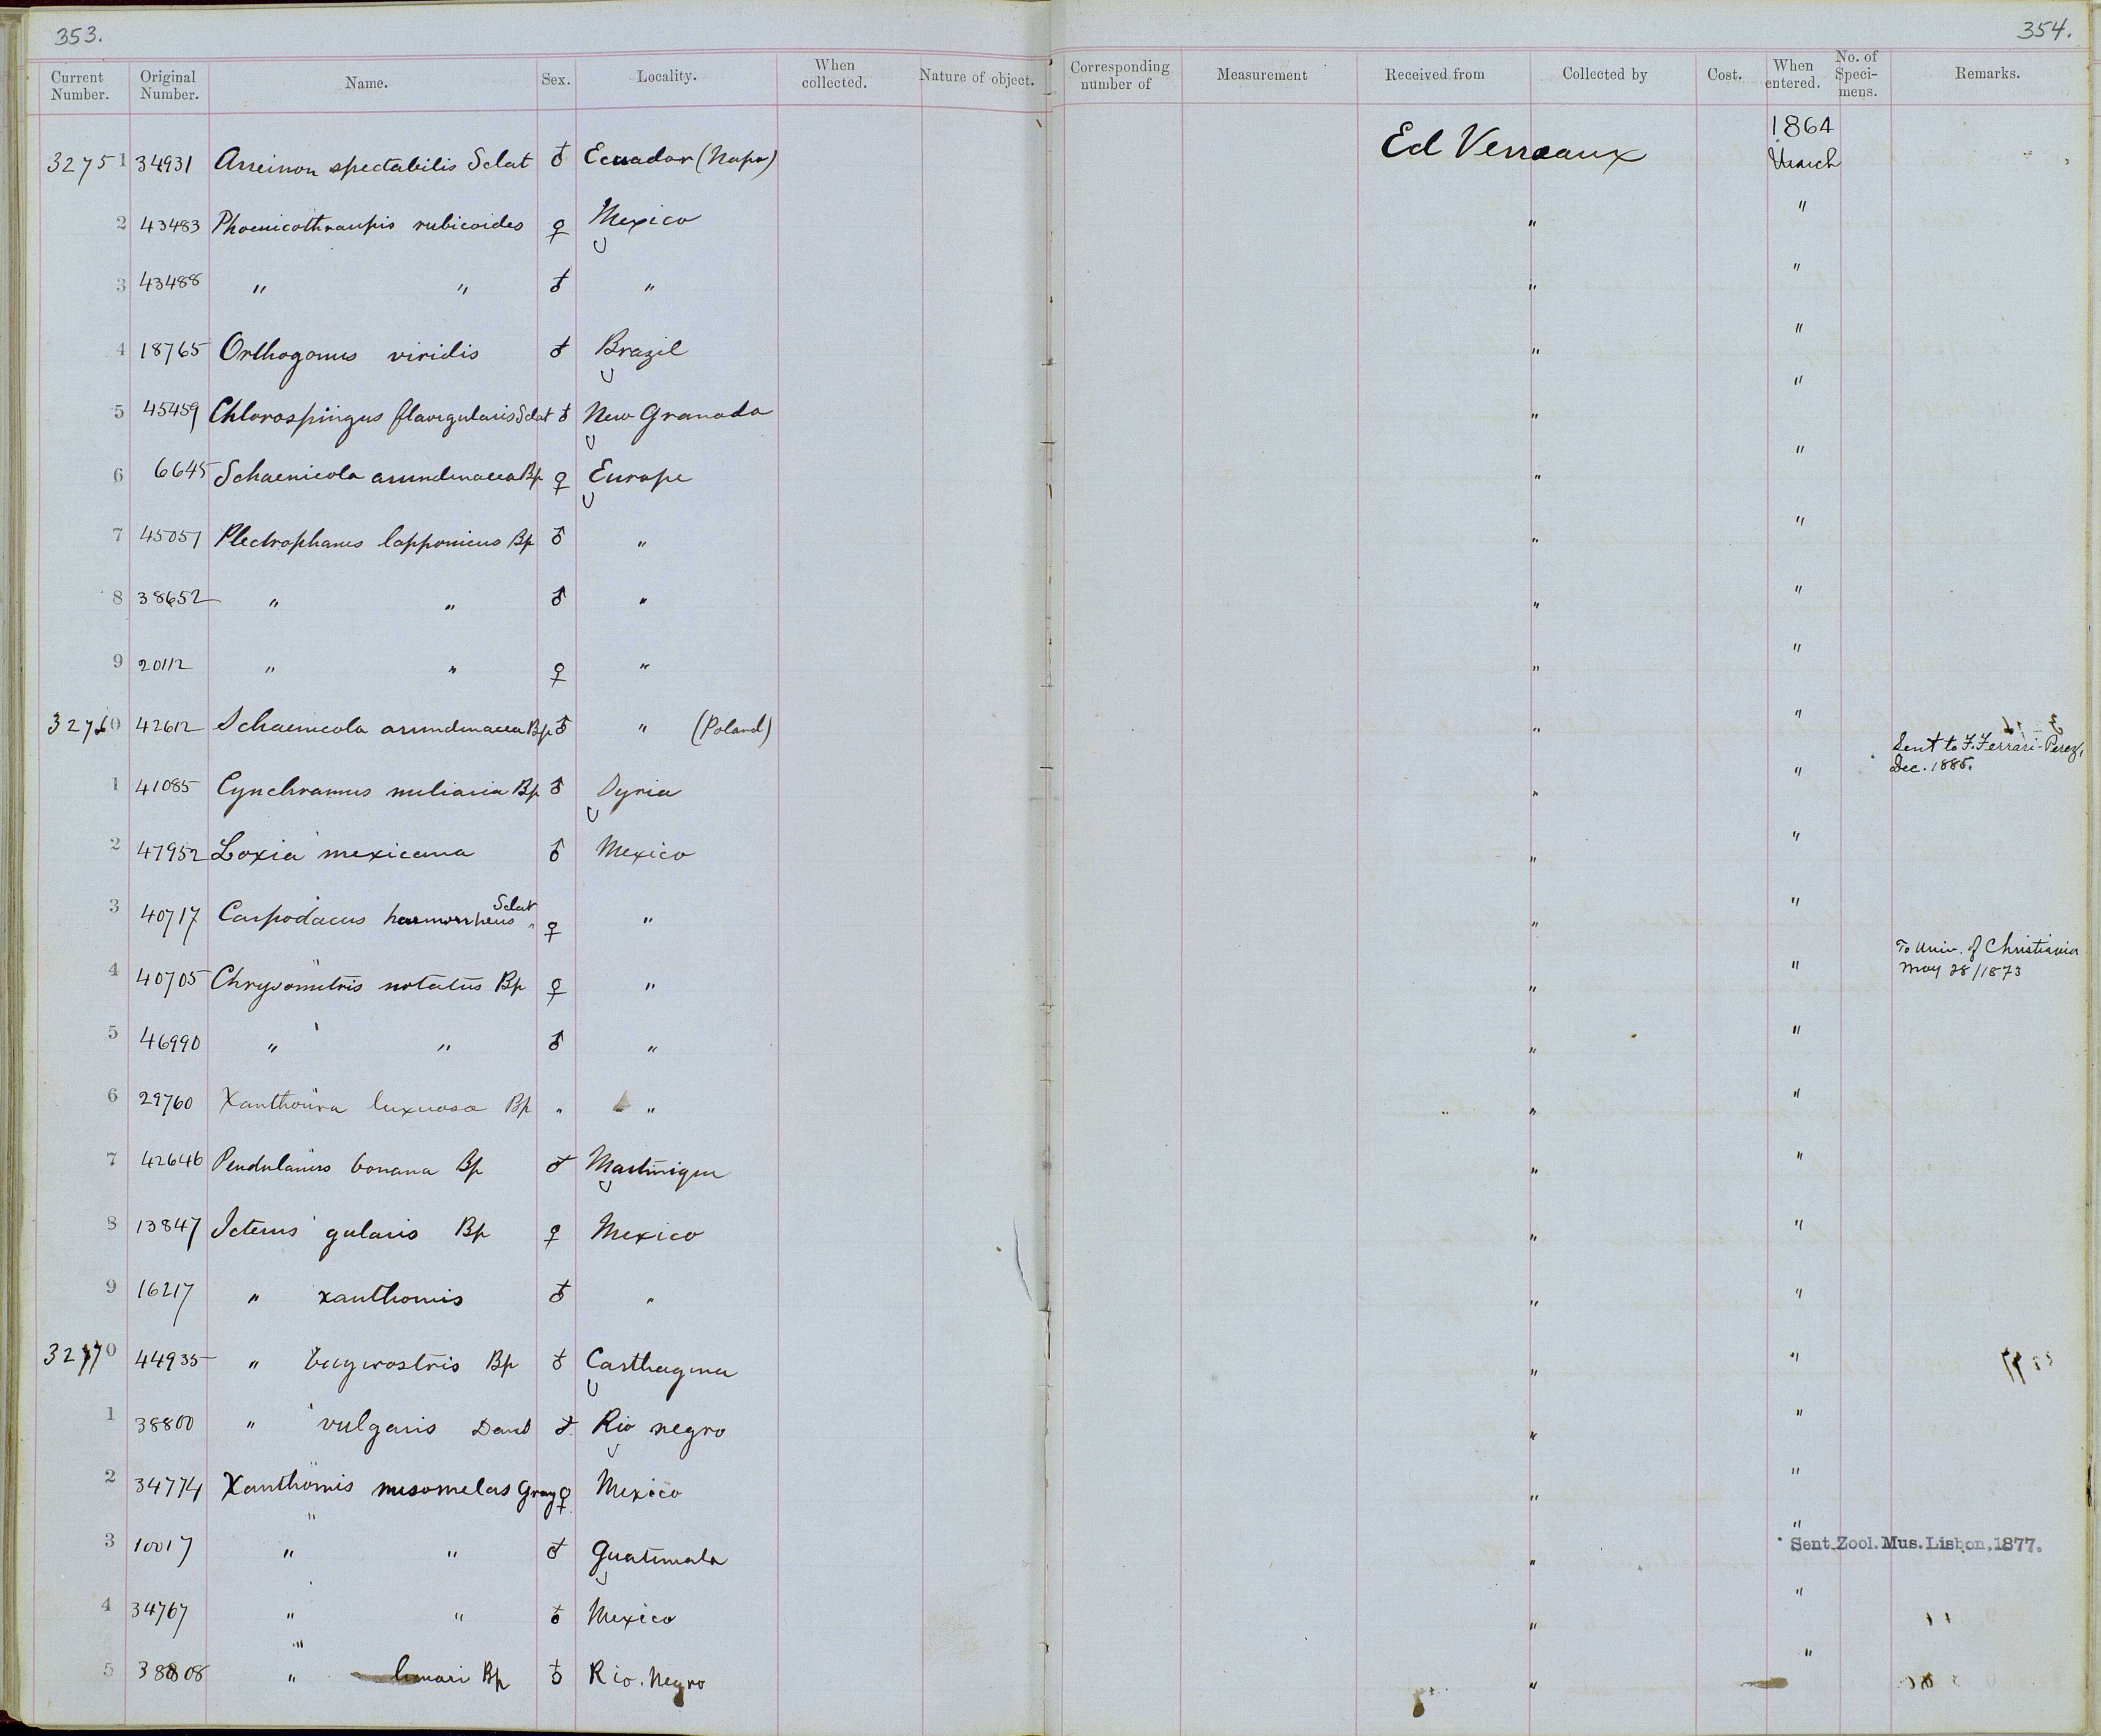 353.
354.
Current Number. Original Number. Name. Sex. Locality. When collected. Nature of object. Corresponding number of Measurement Received from Collected by Cost. When entered. No. of Speci-mens. Remarks.
1864
32751 34931 Arremon spectabilis Sclat ♂ Ecuador (Napo) Ed Verreaux March
2 43483 Phoenicothraupis rubicoides ♀ Mexico " "
3 43488 " " ♂ " " "
4 18765 Orthogonus viridis ♂ Brazil " "
5 45459 Chlorospingus flavigularis Sclat ♂ New Granada " "
6 6645 Schaenicola arundinacea Bp ♀ Europe " "
7 45057 Plectrophanes lapponicus Bp ♂ " " "
8 38652 " " ♂ " " "
9 20112 " " ♀ " " "
32760 42612 Schaenicola arundinacea Bp ♂ " (Poland) " " Sent to F. Ferrari-Perez,
Dec. 1885.
1 41085 Cynchramus miliaria Bp ♂ Syria " "
2 47952 Loxia mexicana ♂ Mexico " "
3 40717 Carpodacus haemorrheus Sclat ♀ " " "
To Univ. of Christiania
May 28/1873
4 40705 Chrysomitris notatus Bp ♀ " " "
5 46990 " " ♂ " " "
6 29760 Xanthoura luxuosa Bp " " " "
7 42646 Pendulinus bonana Bp ♂ Martinique " "
8 13847 Icterus gularis Bp ♀ Mexico " "
9 16217 " xanthornis ♂ " " "
32770 44935 " Bp ♂ Carthagena " "
1 38800 " vulgaris Daud ♂ Rio negro " "
2 34774 Xanthornis mesomelas Gray ♀ Mexico " "
3 10017 " " ♂ Guatimala " " Sent Zool. Mus. Lisbon, 1877.
4 34767 " " ♂ Mexico " "
5 38808 " Bp ♂ Rio. Negro " "